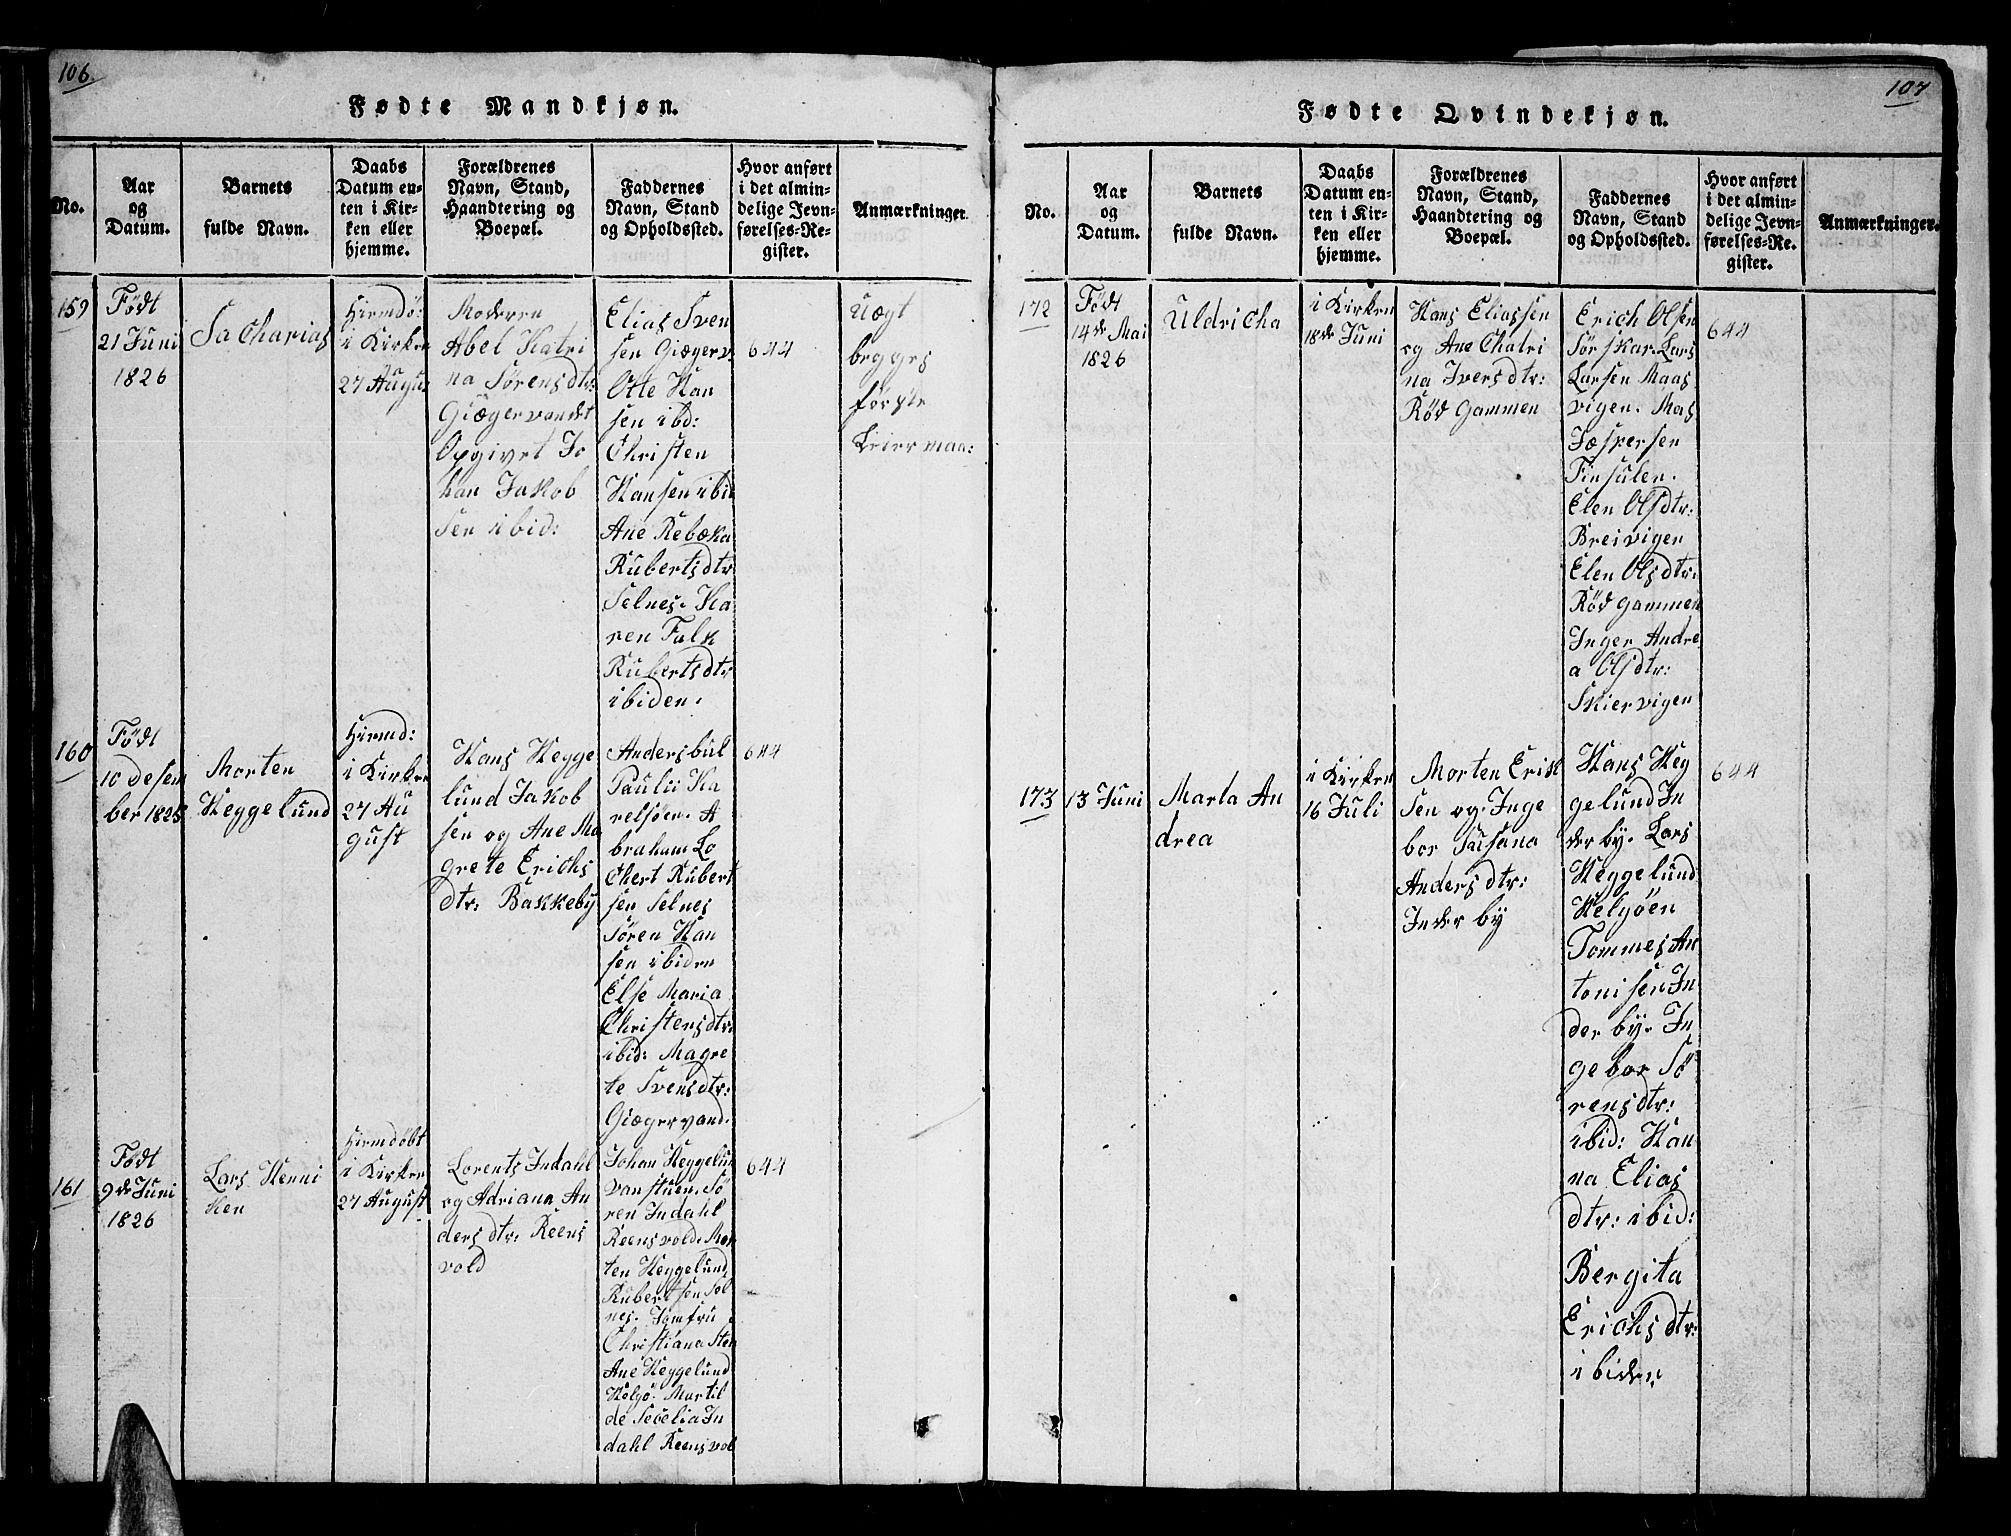 106.
Fødte Mandkjøn.
No.
Aar
og
Datum.
Barnets
fulde Navn.
Daabs
Datum en-
ten i Kir-
ken eller
hjemme.
Forældrenes
Navn, Stand,
Haandtering og
Boepæl.
Faddernes
Navn, Stand
og Opholdssted.
Hvor anført
i det almin-
delige Jevn-
førelses-Re-
gister.
Anmærkninger.
159
Født
21 Juni
1826
Sacharias
Hiemdö:
i Kirken
27 Augus
Moderen
Abel Katri
na Sörensdtr:
Giægervandet
Opgivet Jo
han Jakob
sen ibid:
Elias Sven
sen Giægerv.
Otte Han
sen ibd:
Christen
Hansen ibid
Ane Rebæka
Rubertsdtr
Selnes. Ka
ren Falk
Rubertsdtr
ibiden.
644
Uægt
begges
förste
Leiermaa:
160
Født
10 desem
ber 1825
Morten
Heggelund
Hiemd:
i Kirken
27 Au
gust
Hans Hegge
lund Jakob
sen og Ane Ma
grete Erichs
dtr: Bakkeby
Andersbul
Paulii Ka
relsöen. A
braham Lo
chert Rubert
sen Selnes
Sören Han
sen ibiden
Else Maria
Christensdtr:
ibid: Magre
te Svensdtr:
Giægervand.
644
161
Født
9de Juni
1826
Lars Henni
ken
Hiemdöbt
i Kirken
27 August
Lorents Indahl
og Adriana An
dersdtr: Reens
vold
Johan Heggelun
Vanstuen. Sö
ren Indahl
Reensvold. Mor
ten Heggelund
Rubertsen Sel
nes. Jomfru
Christiana Sten
Ane Heggelund
Helgö. Martil
de Secelia In
dahl Reensvol
644
107
Fødte Qvindekjøn.
No.
Aar
og
Datum.
Barnets
fulde Navn.
Daabs
Datum en-
ten i Kir-
ken eller
hjemme.
Forældrenes
Navn, Stand,
Haandtering og
Boepæl.
Faddernes
Navn, Stand
og Opholdssted.
Hvor anført
i det almin-
delige Jevn-
førelses-Re-
gister.
Anmærkninger.
172
Født
14de Mai
1826
Uldricha
i Kirken
18de Juni
Hans Eliassen
og Ane Chatri
na Iversdtr:
Rödgammen
Erich Olsen
Sörskar. Lars
Larsen Maas
vigen. Mas
Jæspersen
Finsulen.
Elen Olsdtr:
Breivigen
Elen Olsdtr:
Rödgammen
Inger Andre
a Olsdtr:
Skiervigen
644
173
13 Juni
Marta An
drea
i Kirken
16 Juli
Morten Erik
sen og Inge
bor Susana
Andersdtr:
Inderby
Hans Heg
gelund In
derby. Lars
Heggelund
Helgöen
Tommes An
tonisen In
derby. In
gebor Sö
rensdtr:
ibid: Han
na Elias
dtr: ibid:
Bergita
Erichsdtr:
ibiden
644